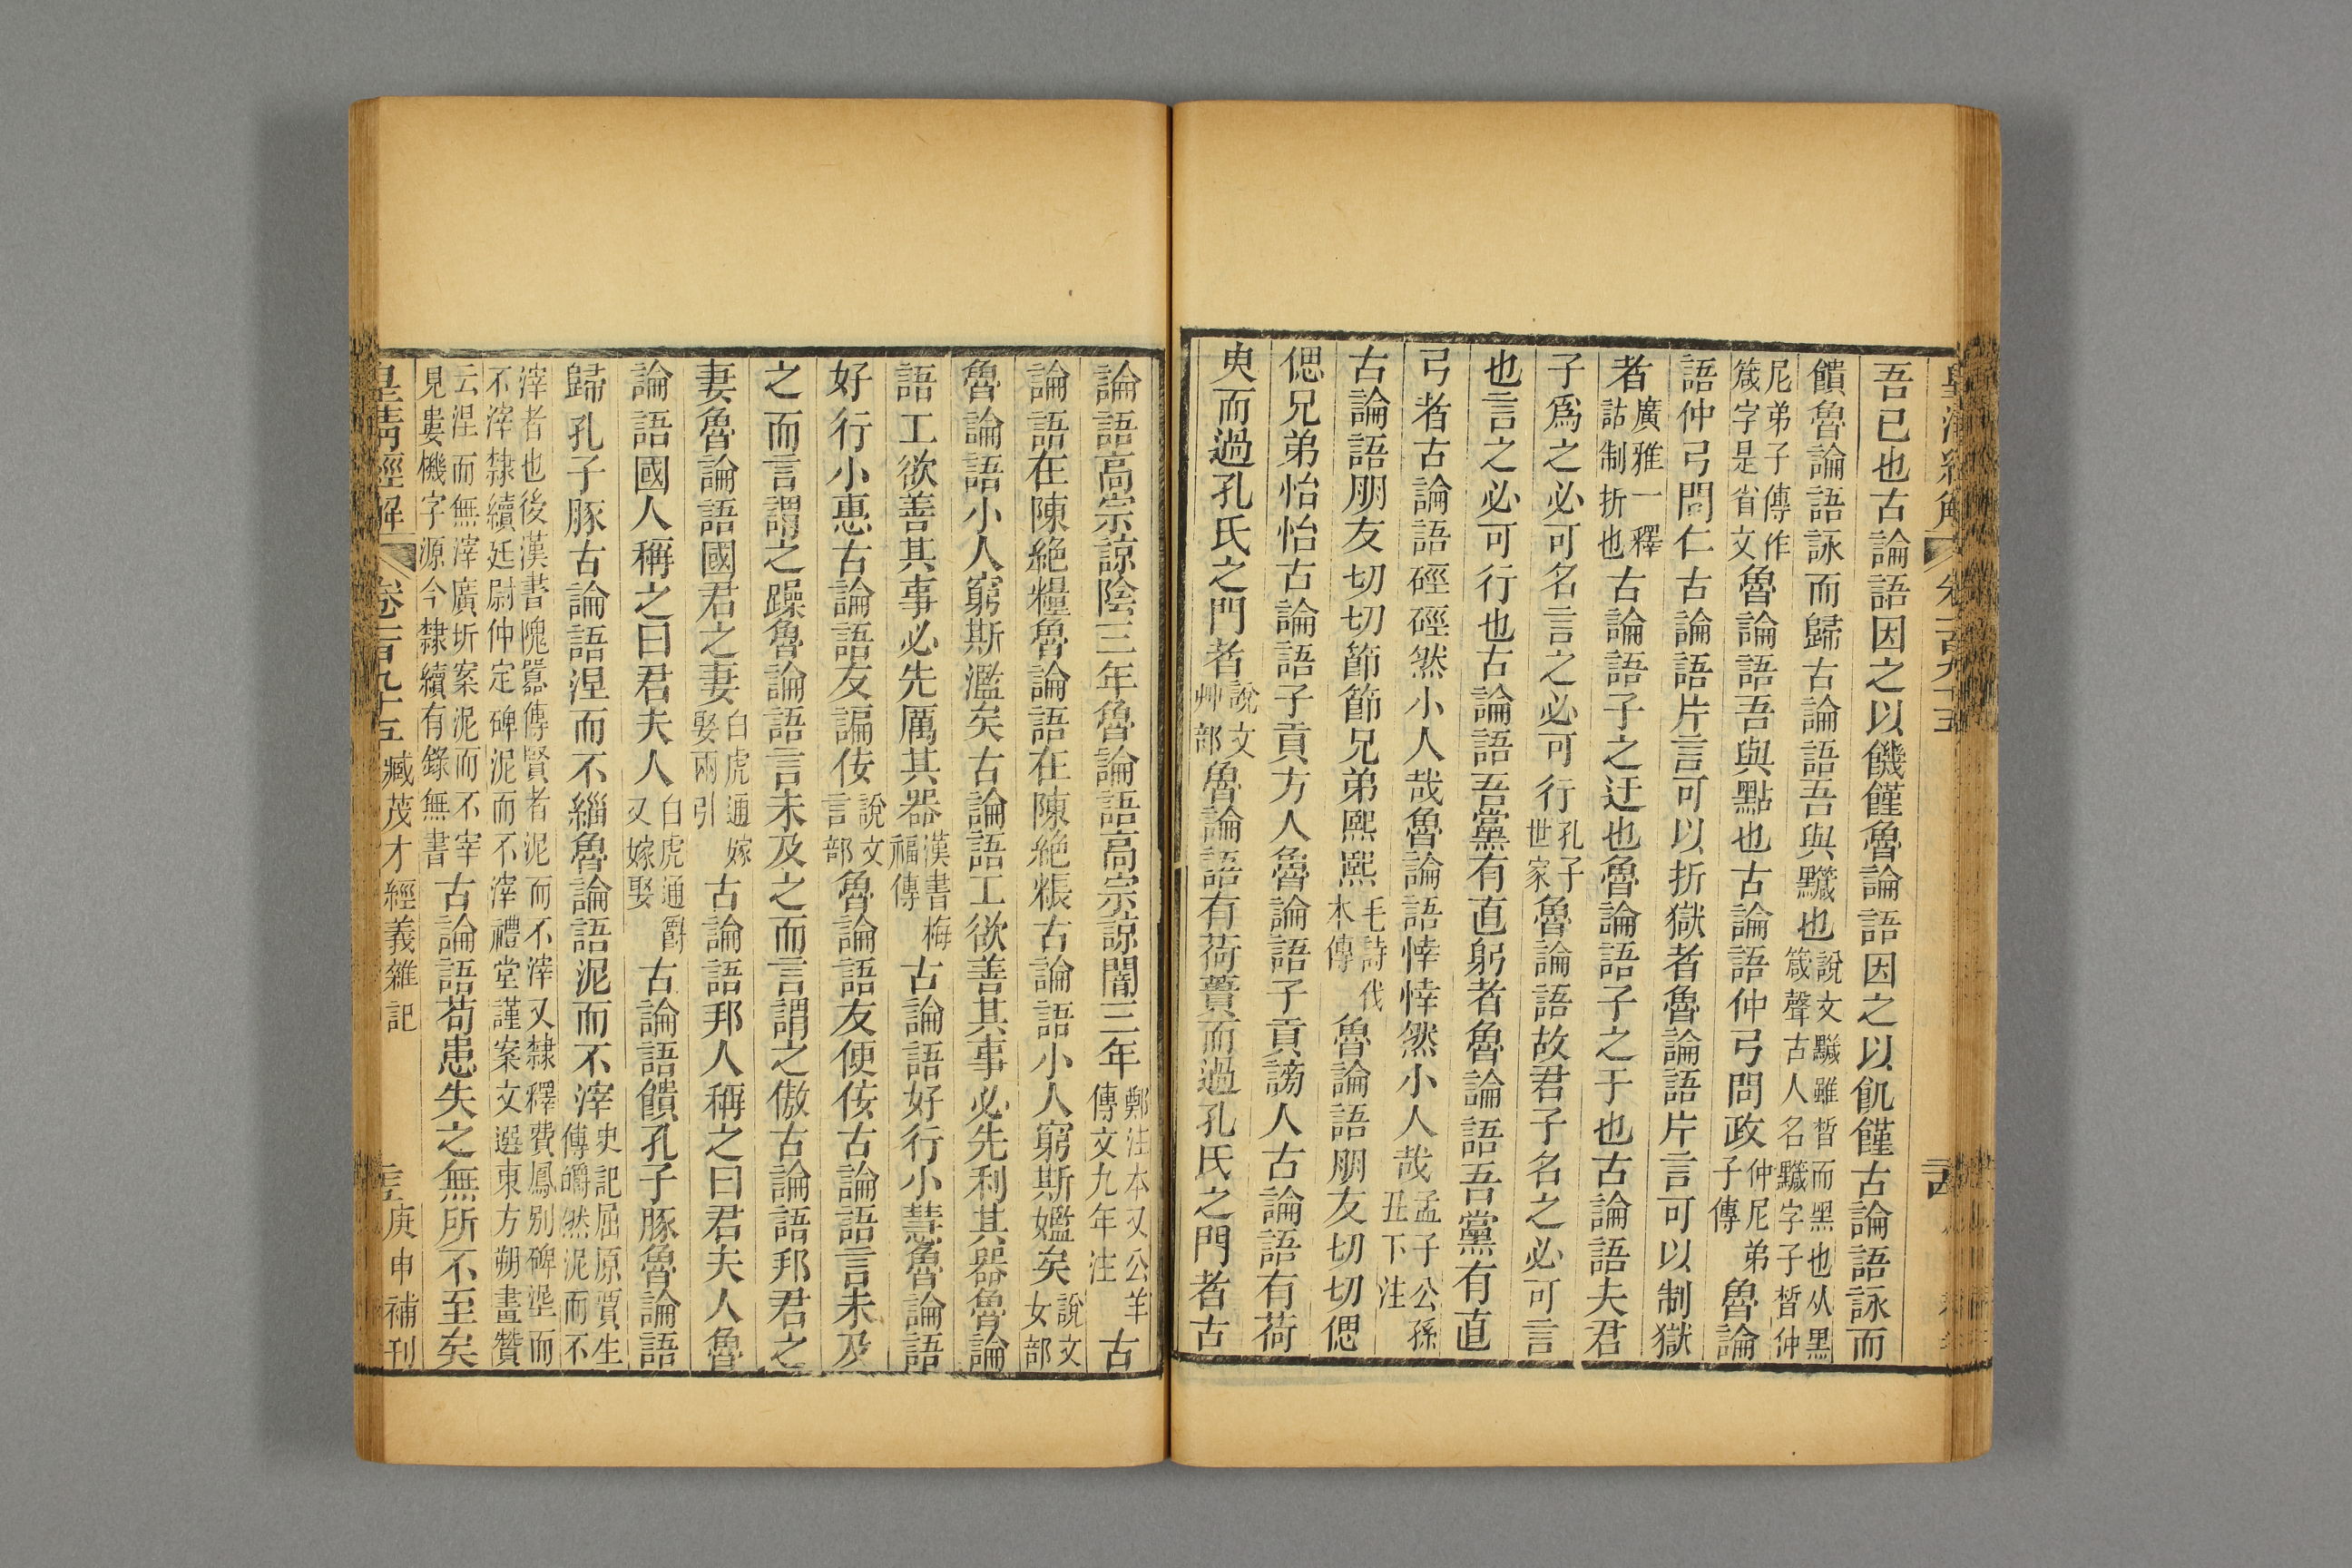 吾已也古論語因之以饑饉魯論語因之以飢饉古論語詠而
饋魯論語詠而歸古論語吾與黬也說文黬雖晳而黑也从黑箴聲古人名黬字子晳仲
尼弟子傳作箴字是省文魯論語吾與點也古論語仲弓問政仲尼弟子傳魯論
語仲弓問仁古論語片言可以折獄者魯論語片言可以制獄
者廣雅一釋詁制折也古論語子之迂也魯論語子之于也古論語夫君
子爲之必可名言之必可行孔子世家魯論語故君子名之必可言
也言之必可行也古論語吾黨有直躬者魯論語吾黨有直
弓者古論語硜硜然小人哉魯論語悻悻然小人哉孟子公孫丑下注
古論語朋友切切節節兄弟熙熙毛詩伐木傳魯論語朋友切切偲
偲兄弟怡怡古論語子貢方人魯論語子貢謗人古論語有荷
臾而過孔氏之門者說文艸部魯論語有荷蕢而過孔氏之門者古
論語高宗諒陰三年魯論語高宗諒闇三年鄭注本又公羊傳文九年注古
論語在陳絶糧魯論語在陳絶粻古論語小人窮斯㜮矣說文女部
魯論語小人窮斯濫矣古論語工欲善其事必先利其器魯論
語工欲善其事必先厲其器漢書梅福傳古論語好行小慧魯論語
好行小惠古論語友諞佞說文言部魯論語友便佞古論語言未及
之而言謂之躁魯論語言未及之而言謂之傲古論語邦君之
妻魯論語國君之妻白虎通嫁娶兩引古論語邦人稱之曰君夫人魯
論語國人稱之曰君夫人白虎通爵又嫁娶古論語饋孔子豚魯論語
歸孔子豚古論語涅而不緇魯論語泥而不滓史記屈原賈生傳皭然泥而不
滓者也後漢書隗囂傳賢者泥而不滓又隸釋費鳳別碑埿而不滓隸續廷尉仲定碑泥而不滓禮堂謹案文選東方朔畫贊
云涅而無滓廣圻案泥而不宰見婁機字源今隸續有錄無書古論語苟患失之無所不至矣
皇清經解 卷一百九十五 臧茂才經義雜記 庚申補刊